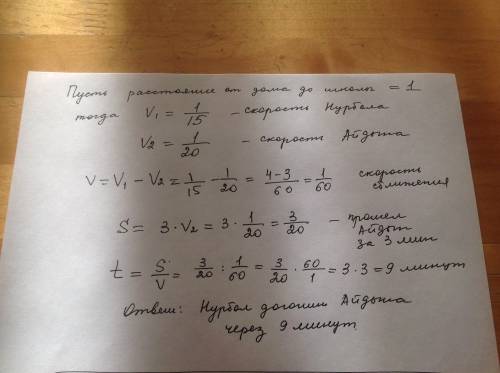 Пусть расстояние от дома до школы = 1
тогда V₁ = 1/15 – скорость Нурбола
V₂ = 1/20 – скорость Айдына
V = V₁ – V₂ = 1/15 – 1/20 = 4-3/60 = 1/60 скорость сближения
S = 3 · V₂ = 3 · 1/20 = 3/20 – прошел Айдын за 3 мин
t = S/V = 3/20 : 1/60 = 3/20 · 60/1 = 3 · 3 = 9 минут
Ответ: Нурбол догонит Айдына
через 9 минут